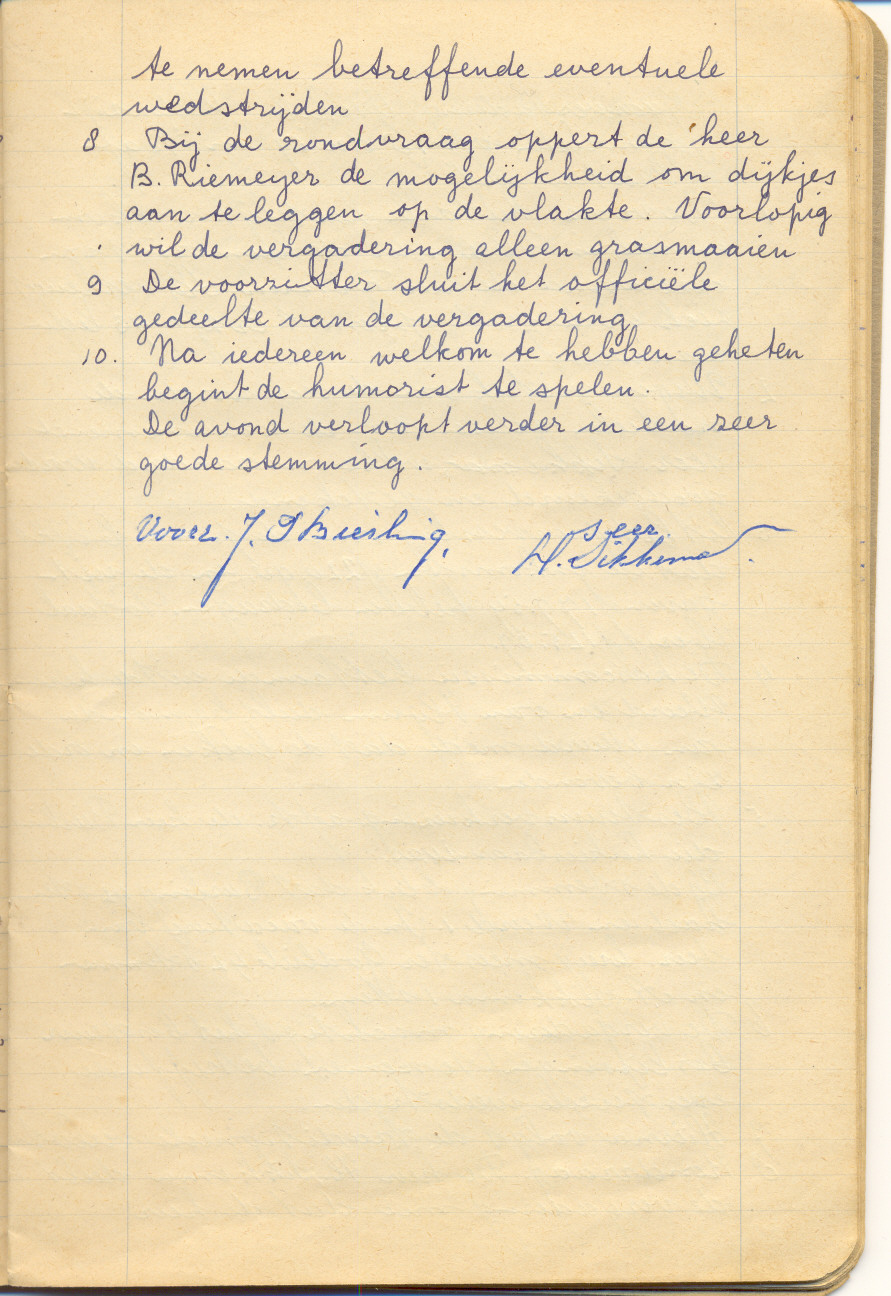 te nemen betreffende eventuele
wedstrijden
8 Bij de rondvraag oppert de heer
B. Riemeyer de mogelijkheid om dijkjes
aan te leggen op de vlakte. Voorlopig
wil de vergadering alleen grasmaaien
9 De voorzitter sluit het officiële
gedeelte van de vergadering
10. Na iedereen welkom te hebben geheten
begint de humorist te spelen.
De avond verloopt verder in een zeer
goede stemming.
Voorz. J.
Secr.
H. Dikkema.